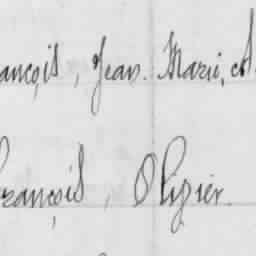 ançois, Jean. Marie, et
François, Olizier.